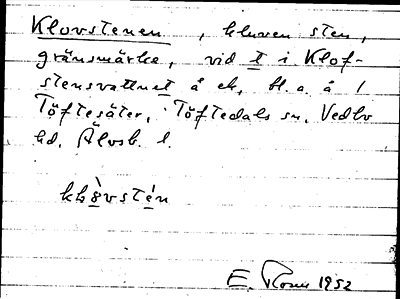 Klovstenen, kluven sten,
gränsmärke, vid t i Klof-
stensvattnet å ek. bl. a. å 1
Töftesäter, Töftedals sn, Vedbo
hd, Älvsb. l.
E. 1952